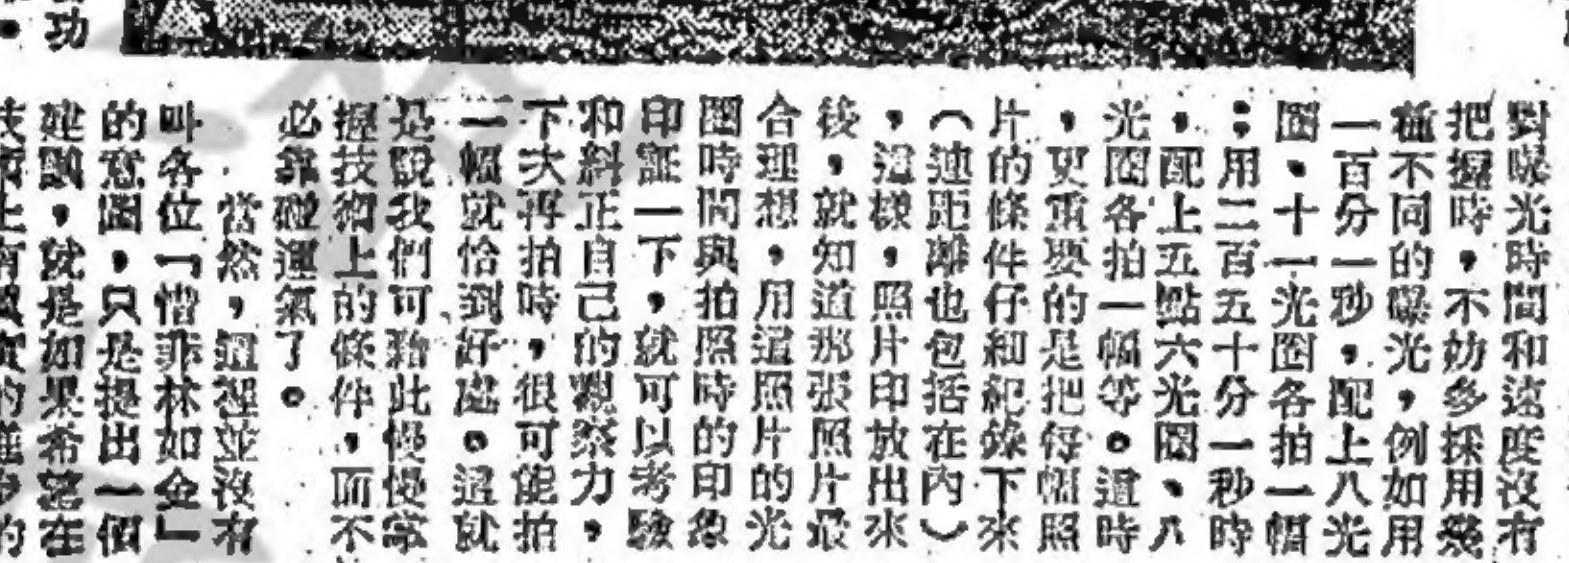 對曝光時間和速度沒有
把握時，不妨多採用幾
種不同的曝光，例如用
一百分一秒，配上八光
圈、十一光圈各拍一幅
；用二百五十分一秒時
，配上五點六光圈、八
光圈各拍一幅等。這時
，更重要的是把每幅照
片的條件仔細紀錄下來
（連距離也包括在內）
，這樣，照片印放出來
後，就知道那張照片最
合理想，用這照片的光
圈時間與拍照時的印象
印証一下，就可以考驗
和糾正自己的觀察力，
下次再拍時，很可能拍
一幅就恰到好處。這就
是說我們可藉此慢慢掌
握技術上的條件，而不
必靠碰運氣了。
當然，這裡並沒有
叫各位「惜菲林如金」
的意圖，只是提出一個
建議，就是如果希望在
功